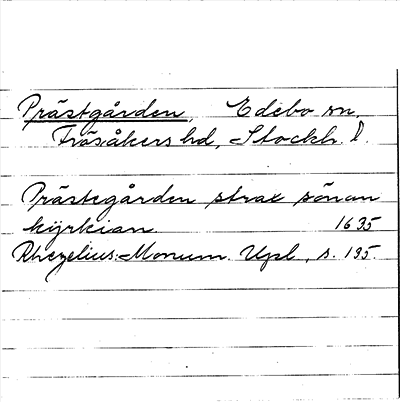 Prästgården, Edebo sn.
Frösåkers hd, Stockh. l.
Prästegården strax sönan
kyrkian. 1635
Rhezelius: Monum. Upl., s. 195.